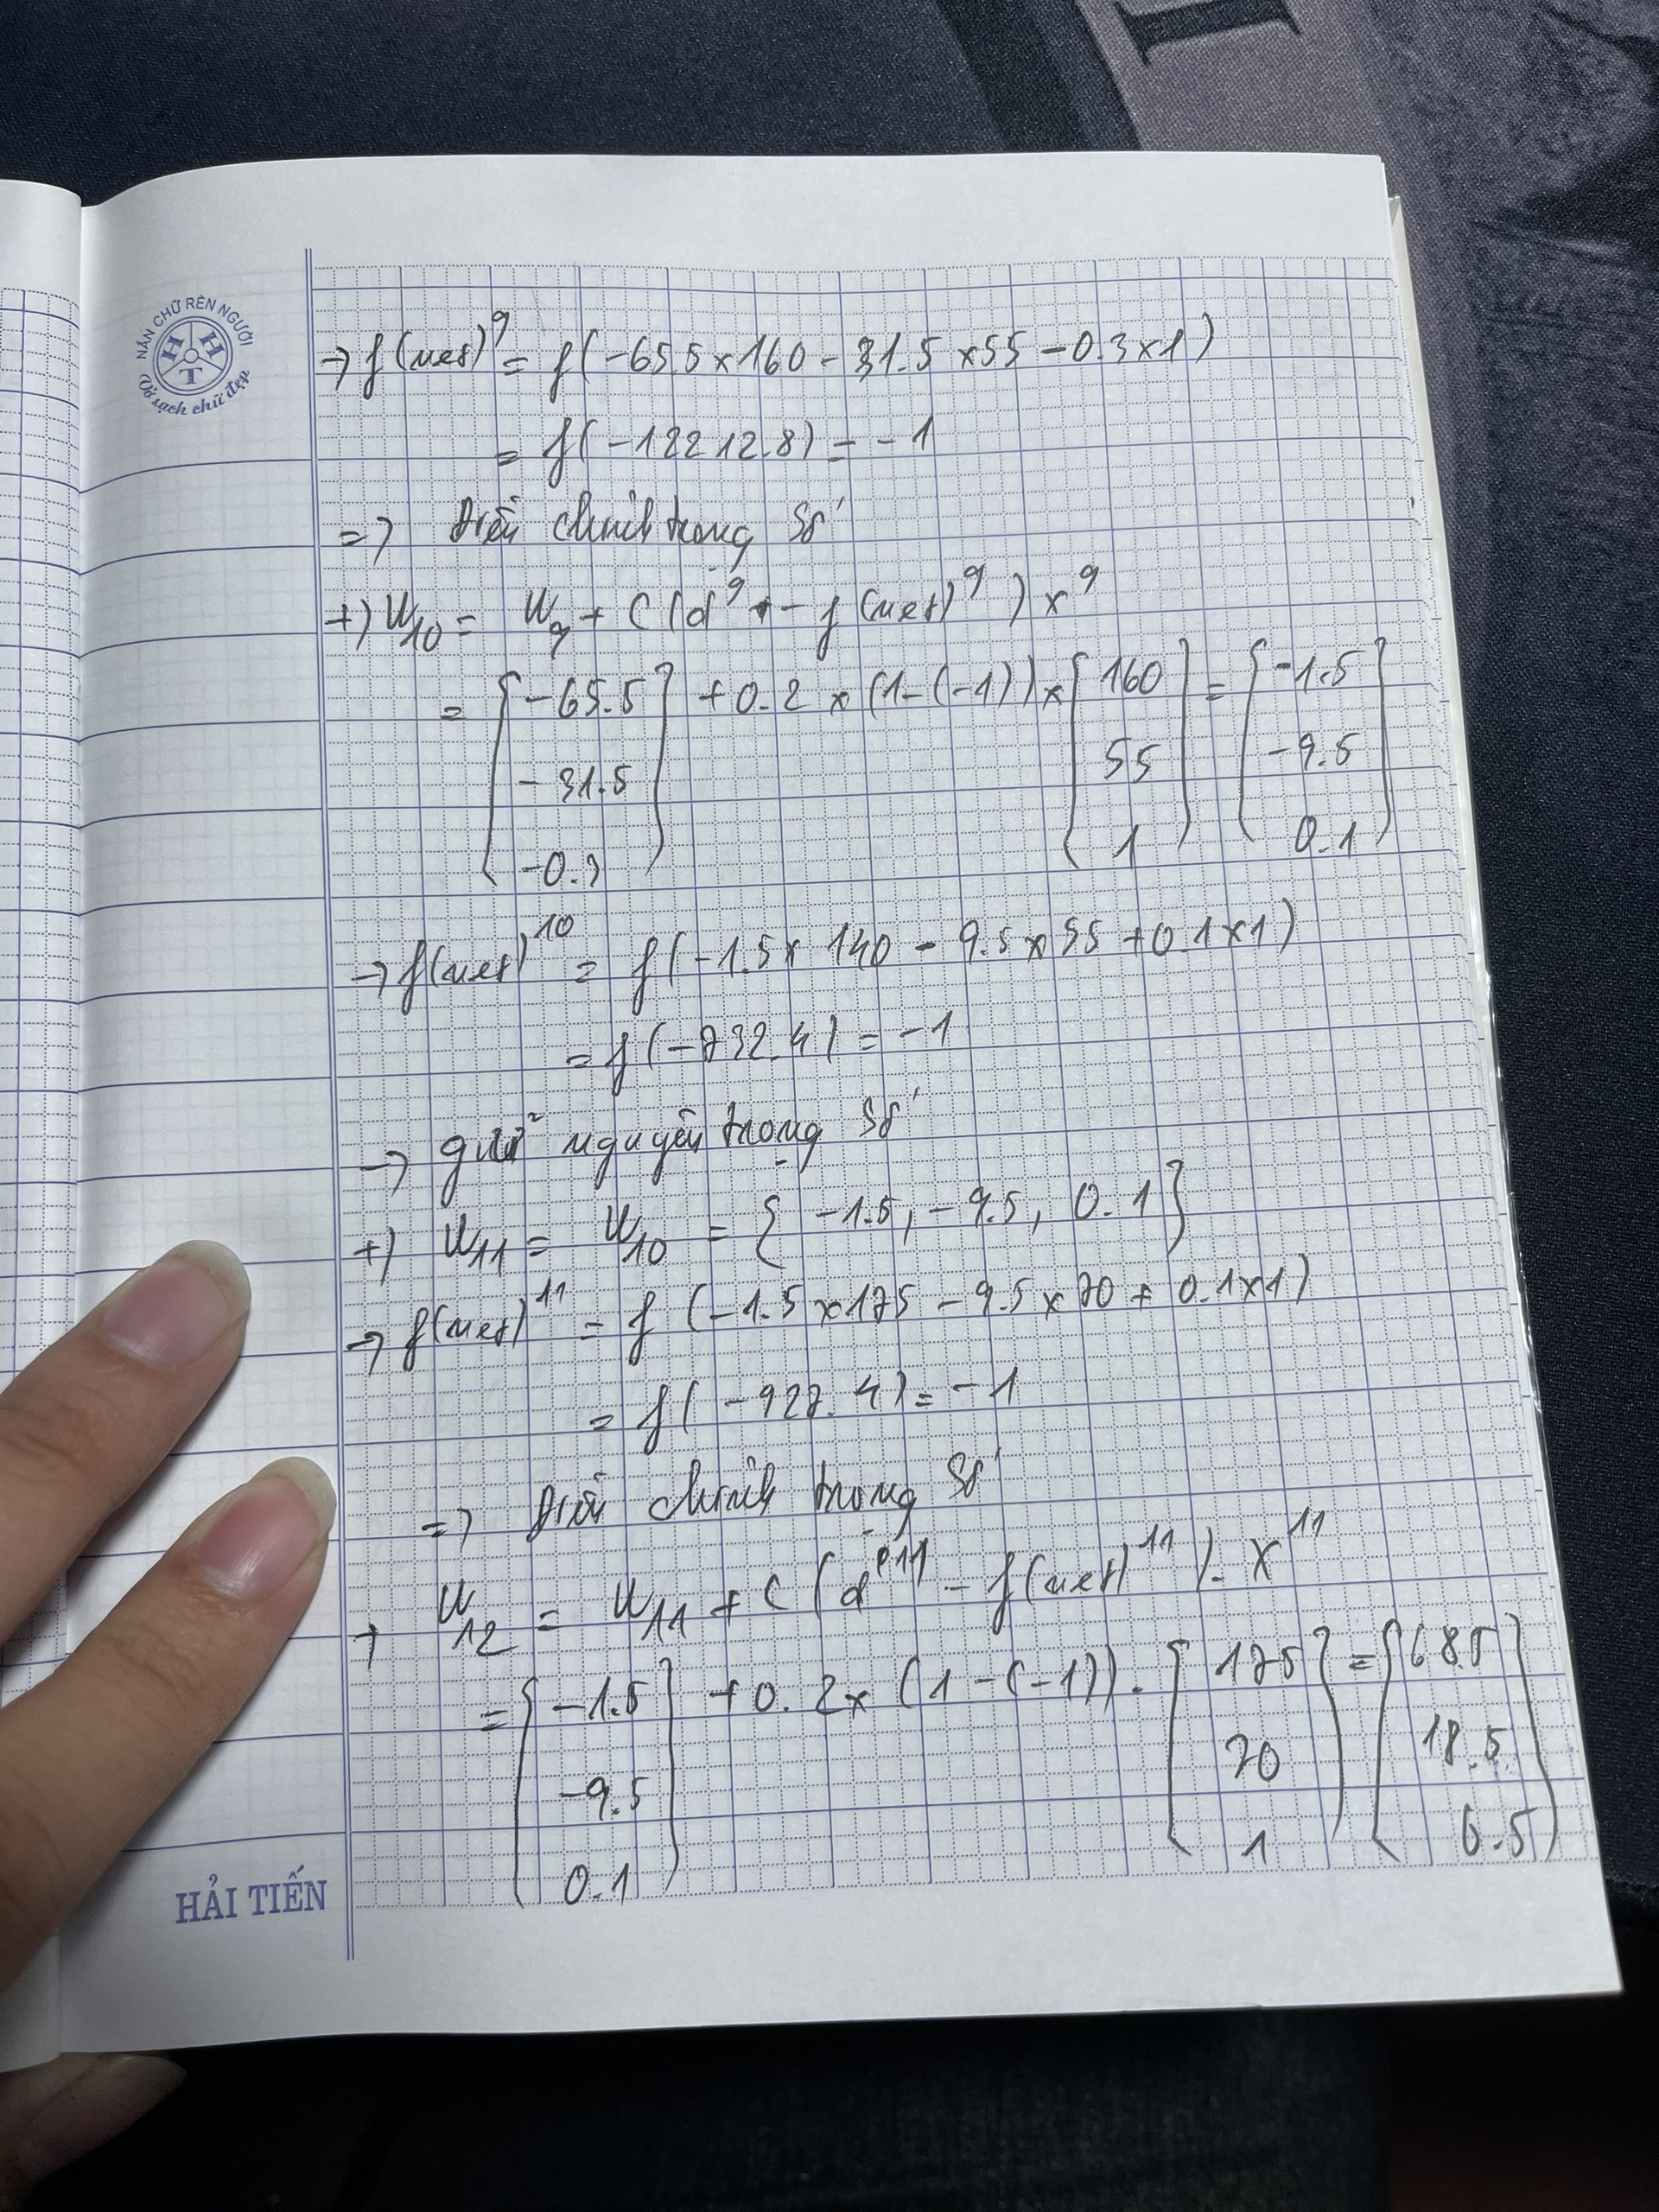 NẮN CHỮ RÈN NGƯỜI
H H T
Vở sạch chữ đẹp
→ f(net)^9 = f(-65.5 x 160 - 31.5 x 55 - 0.3 x 1)
= f(-12212.8) = -1
=> Điều chỉnh trọng số
+) W_10 = W_9 + C(d^9 - f(net)^9) x^9
= [-65.5 -31.5 -0.3] + 0.2 x (1-(-1)) x [160 55 1] = [-1.5 -9.5 0.1]
→ f(net)^10 = f(-1.5 x 140 - 9.5 x 55 + 0.1 x 1)
= f(-732.4) = -1
→ giữ nguyên trọng số
+) W_11 = W_10 = {-1.5, -9.5, 0.1}
→ f(net)^11 = f(-1.5 x 175 - 9.5 x 70 + 0.1 x 1)
= f(-927.4) = -1
=> Điều chỉnh trọng số
→ W_12 = W_11 + C(d^11 - f(net)^11). X^11
= [-1.5 -9.5 0.1] + 0.2 x (1-(-1)). [175 70 1] = [68.5 18.5 0.5]
HẢI TIẾN